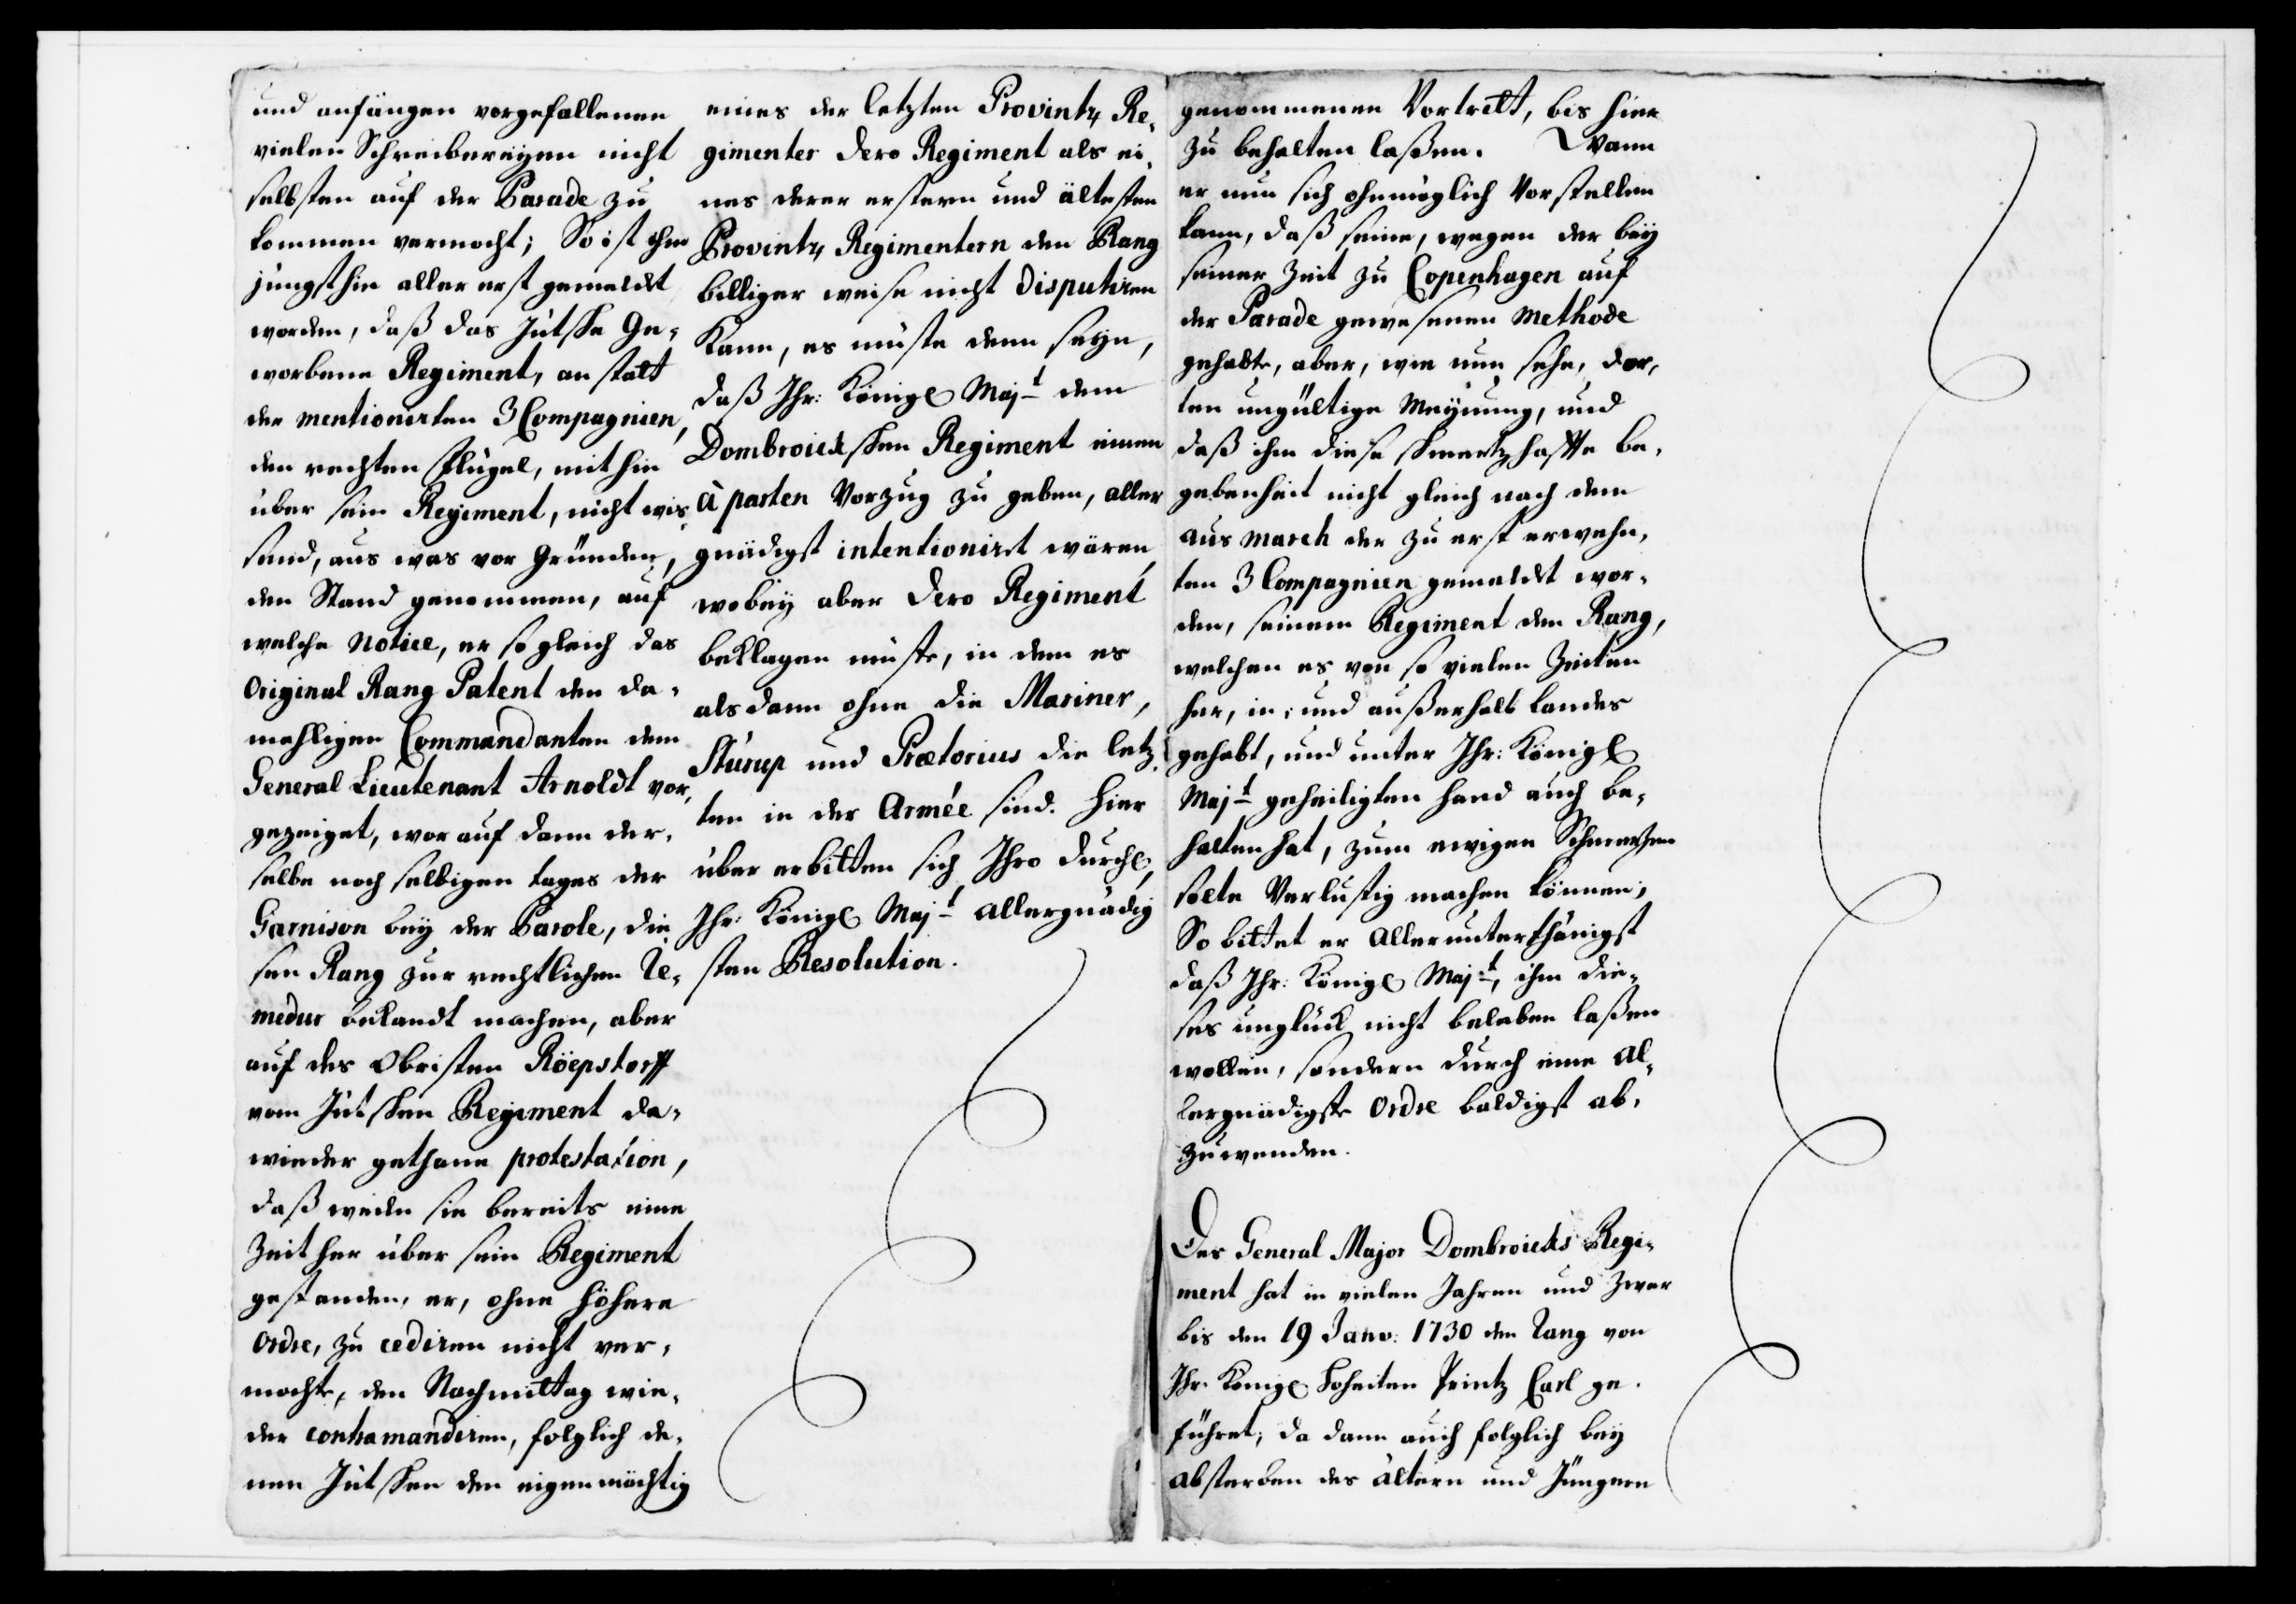 und anfängen vorgefallenen
vielen Schreibereyen nicht
selbsten auf der Parade zu
kommen vermocht; So ist ihm
jüngsthin aller erst gemeldet
worden, daß das Jütsche Ge-
worbene Regiment, an statt
der mentionirten 3 Compagnien,
den rechten Flügel, mithin
über sein Regiment, nicht wis-
send, aus was vor Gründen,
den Stand genommen, auf
welche Notice, er so gleich das
Original Rang Patent den da-
mahligen Commandanten dem
General Lieutenant Arnoldt vor-
gezeiget, worauf dann der-
selbe noch selbigen tages der
Garnison bey der Parole, die-
sen Rang zur rechtlichen Re-
medur bekandt machen, aber
auf des Obristen Röepstorff
vom Jütschen Regiment da-
wieder gethane protestation,
daß weilen sie bereits eine
Zeit her über sein Regiment
gestanden, er, ohne höhere
Ordre, zu cediren nicht ver-
mochte, den Nachmittag wie-
der contramandiren, folglich de-
nen Jütschen den eigenmächtig
eines der letzten Provintz Re-
gimenter dero Regiment als ei-
nes derer erstern und ältesten
Provintz Regimentern den Rang
billiger weise nicht disputiren
kann, es müste denn seyn,
daß Ihr: Königl Majt dem
Dombroickschen Regiment einen
à parten Vorzug zu geben, aller
gnädigst intentioniret wären,
wobey aber dero Regiment
beklagen müste, in dem es
alsdann ohne die Mariner,
Sturup und Prætorius die letz-
ten in der Armée sind. hier
über erbitten sich Ihro durchl,
Ihr: Königl Majt Allergnädig
sten Resolution.
genommenen Vortritt, bis hier
zu behalten laßen. Wann
er nun sich ohnmöglich Vorstellen
kann, daß seine, wegen der bey
seiner Zeit zu Copenhagen auf
der Parade gewesenen Methode
gehabte, aber, wie nun sehe, dor-
ten ungültige Meynung, und
daß ihm diese schmertzhaffte be-
gebenheit nicht gleich nach dem
aus march der zu erst erwehn-
ten 3 Compagnien gemeldet wor-
den, seinem Regiment den Rang,
welchen es von so vielen Zeiten
her, in- und außerhalb landes
gehabt, und unter Ihr: Königl
Majt geheiligten hand auch be-
halten hat, zum ewigen Schmertzen
solte Verlustig machen können;
So bittet er Allerunterthänigst
daß Ihr: Königl Majt, ihm die-
ses unglück nicht beleben laßen
wollen, sondern durch eine Al-
lergnädigste Ordre baldigst ab-
zuwenden.
Des General Major Dombroicks Regi-
ment hat in vielen Jahren und zwar
bis den 19 Janv: 1730 den Rang von
Ihr. Königl Hoheiten Printz Carl ge-
führet; da dann auch folglich bey
absterben des ältern und Jüngern